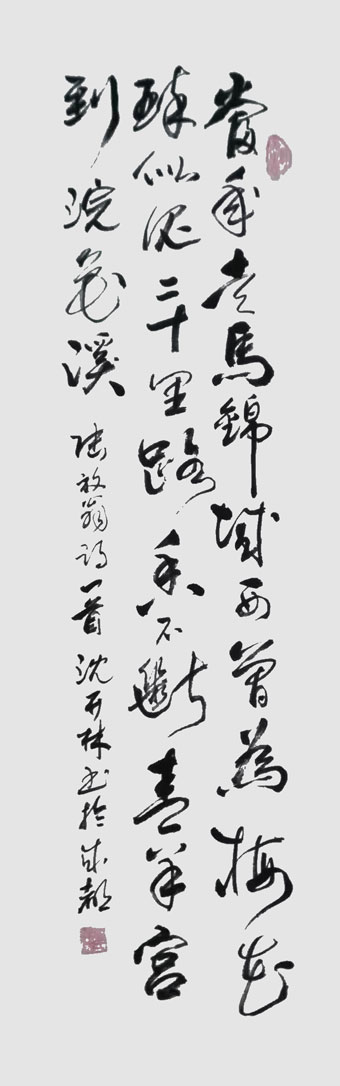 當年走馬錦城西曾為梅花
醉似泥二十里路香不斷青羊宮
到浣花溪 陸放翁詩一首 沈开林书於成都